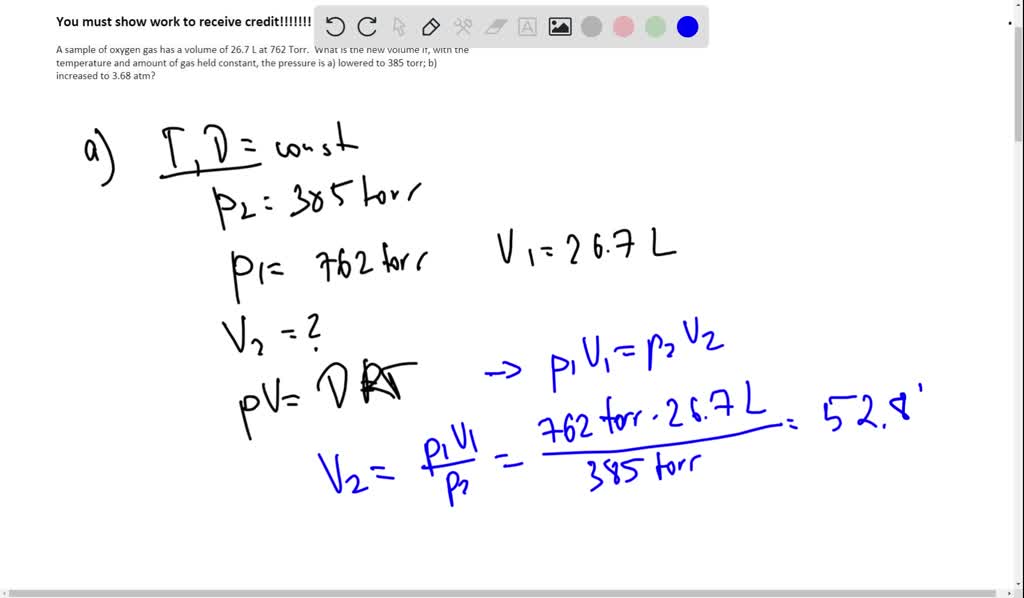 You must show work to receive credit!!!!!!!
A
A sample of oxygen gas has a volume of 26.7 L at 762 Torr. What is the new volume if, with the
temperature and amount of gas held constant, the pressure is a) lowered to 385 torr; b)
increased to 3.68 atm?
a) T, D = const
p2 = 385 torr
p1 = 762 torr V1 = 26.7 L
V2 = ?
pV = DRT → p1V1 = p2V2
V2 = p1V1 / p2 = 762 torr · 26.7 L / 385 torr = 52.8